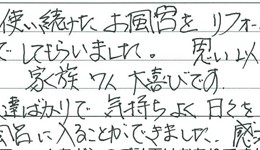 使い続けた お風呂を リフォー
でしてもらいました。 思い以
家族 7人 大喜びです.
達ばかりで 気持ちよく 日々を
風呂に入ることができました. 感